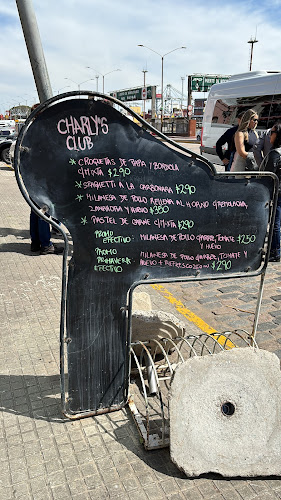 CHARLY'S
CLUB
* CROQUETAS DE PAPA Y BONDIOLA
C/MIXTA $290
* SPAGUETTI A LA CARBONARA $290
* MILANESA DE POLLO RELLENA AL HORNO C/REMOLACHA,
ZANAHORIA Y HUEVO $350
* PASTEL DE CARNE C/MIXTA $290
PROMO
EFECTIVO: MILANESA DE POLLO C/PURE, TOMATE $250
Y HUEVO
PROMO
PRIMAVERA
EFECTIVO MILANESA DE POLLO C/PURE, TOMATE Y
HUEVO + REFRESCO $290